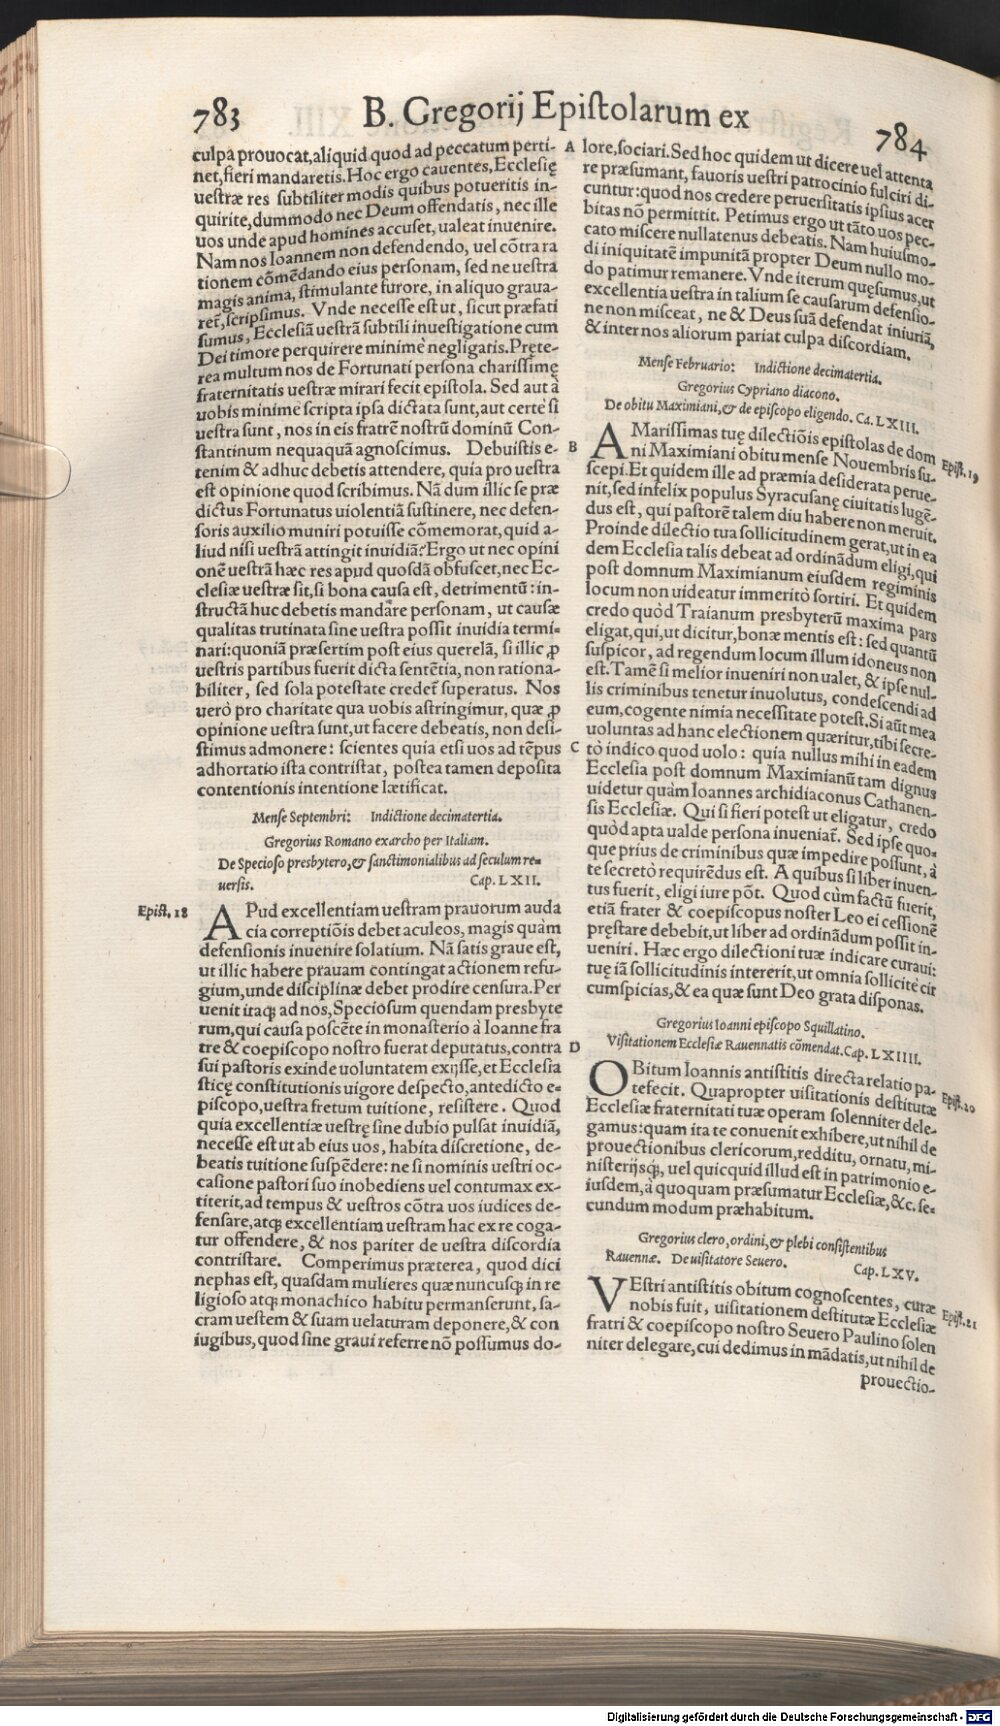 783
B. Gregorij Epistolarum ex
784
culpa prouocat, aliquid quod ad peccatum perti-
net, fieri mandaretis. Hoc ergo cauentes, Ecclesię
uestræ res subtiliter modis quibus potueritis in-
quirite, dummodo nec Deum offendatis, nec ille
uos unde apud homines accuset, ualeat inuenire.
Nam nos Ioannem non defendendo, uel cõtra ra
tionem cõmẽdando eius personam, sed ne uestra
magis anima, stimulante furore, in aliquo graua-
ret̃, scripsimus. Vnde necesse est ut, sicut præfati
sumus, Ecclesiã uestrã subtili inuestigatione cum
Dei timore perquirere minimè negligatis. Pręte-
rea multum nos de Fortunati persona charissimę
fraternitatis uestræ mirari fecit epistola. Sed aut à
uobis minimè scripta ipsa dictata sunt, aut certè si
uestra sunt, nos in eis fratrẽ nostrũ dominũ Con-
stantinum nequaquã agnoscimus. Debuistis e-
tenim & adhuc debetis attendere, quia pro uestra
est opinione quod scribimus. Nã dum illic se præ
dictus Fortunatus uiolentiã sustinere, nec defen-
soris auxilio muniri potuisse cõmemorat, quid a-
liud nisi uestrã attingit inuidiã? Ergo ut nec opini
onẽ uestrã hæc res apud quosdã obfuscet, nec Ec-
clesiæ uestræ sit, si bona causa est, detrimentũ: in-
structã huc debetis mandare personam, ut causæ
qualitas trutinata sine uestra possit inuidia termi-
nari: quoniã præsertim post eius querelã, si illic ꝓ
uestris partibus fuerit dicta sentẽtia, non rationa-
biliter, sed sola potestate credet̃ superatus. Nos
uerò pro charitate qua uobis astringimur, quæ ꝓ
opinione uestra sunt, ut facere debeatis, non desi-
stimus admonere: scientes quia etsi uos ad tẽpus
adhortatio ista contristat, postea tamen deposita
contentionis intentione lætificat.
Mense Septembri: Indictione decimatertia.
Gregorius Romano exarcho per Italiam.
De Specioso presbytero, & sanctimonialibus ad seculum re-
uersis. Cap. LXII.
Epist. 18
APud excellentiam uestram prauorum auda
cia correptiõis debet aculeos, magis quàm
defensionis inuenire solatium. Nã satis graue est,
ut illic habere prauam contingat actionem refu-
gium, unde disciplinæ debet prodire censura. Per
uenit itaq; ad nos, Speciosum quendam presbyte
rum, qui causa poscẽte in monasterio à Ioanne fra
tre & coepiscopo nostro fuerat deputatus, contra
sui pastoris exinde uoluntatem exijsse, et Ecclesia
sticę constitutionis uigore despecto, antedicto e-
piscopo, uestra fretum tuitione, resistere. Quod
quia excellentiæ uestrę sine dubio pulsat inuidiã,
necesse est ut ab eius uos, habita discretione, de-
beatis tuitione suspẽdere: ne si nominis uestri oc-
casione pastori suo inobediens uel contumax ex-
titerit, ad tempus & uestros cõtra uos iudices de-
fensare, atq; excellentiam uestram hac ex re coga-
tur offendere, & nos pariter de uestra discordia
contristare. Comperimus præterea, quod dici
nephas est, quasdam mulieres quæ nuncusq; in re
ligioso atq; monachico habitu permanserunt, sa-
cram uestem & suam uelaturam deponere, & con
iugibus, quod sine graui referre nõ possumus do-
A
B
C
D
lore, sociari. Sed hoc quidem ut dicere uel attenta
re præsumant, fauoris uestri patrocinio fulciri di-
cuntur: quod nos credere peruersitatis ipsius acer
bitas nõ permittit. Petimus ergo ut tãto uos pec-
cato miscere nullatenus debeatis. Nam huiusmo-
di iniquitatẽ impunitã propter Deum nullo mo-
do patimur remanere. Vnde iterum quęsumus, ut
excellentia uestra in talium se causarum defensio-
ne non misceat, ne & Deus suã defendat iniuriã,
& inter nos aliorum pariat culpa discordiam.
Mense Februario: Indictione decimatertia.
Gregorius Cypriano diacono.
De obitu Maximiani, & de episcopo eligendo. Ca. LXIII.
AMarissimas tuę dilectiõis epistolas de dom
ni Maximiani obitu mense Nouembris su-
scepi. Et quidem ille ad præmia desiderata perue-
nit, sed infelix populus Syracusanę ciuitatis lugẽ-
dus est, qui pastorẽ talem diu habere non meruit.
Proinde dilectio tua sollicitudinem gerat, ut in ea
dem Ecclesia talis debeat ad ordinãdum eligi, qui
post domnum Maximianum eiusdem regiminis
locum non uideatur immeritò sortiri. Et quidem
credo quòd Traianum presbyterũ maxima pars
eligat, qui, ut dicitur, bonæ mentis est: sed quantũ
suspicor, ad regendum locum illum idoneus non
est. Tamẽ si melior inueniri non ualet, & ipse nul-
lis criminibus tenetur inuolutus, condescendi ad
eum, cogente nimia necessitate potest. Si aũt mea
uoluntas ad hanc electionem quæritur, tibi secre-
tò indico quod uolo: quia nullus mihi in eadem
Ecclesia post domnum Maximianũ tam dignus
uidetur quàm Ioannes archidiaconus Cathanen-
sis Ecclesiæ. Qui si fieri potest ut eligatur, credo
quòd apta ualde persona inueniat̃. Sed ipse quo-
que prius de criminibus quæ impedire possunt, à
te secretò requirẽdus est. A quibus si liber inuen-
tus fuerit, eligi iure põt. Quod cùm factũ fuerit,
etiã frater & coepiscopus noster Leo ei cessionẽ
pręstare debebit, ut liber ad ordinãdum possit in-
ueniri. Hæc ergo dilectioni tuæ indicare curaui:
tuę iã sollicitudinis intererit, ut omnia sollicitè cir
cumspicias, & ea quæ sunt Deo grata disponas.
Epist. 19
Gregorius Ioanni episcopo Squillatino.
Visitationem Ecclesiæ Rauennatis cõmendat. Cap. LXIIII.
OBitum Ioannis antistitis directa relatio pa-
tefecit. Quapropter uisitationis destitutæ
Ecclesiæ fraternitati tuæ operam solenniter dele-
gamus: quam ita te conuenit exhibere, ut nihil de
prouectionibus clericorum, redditu, ornatu, mi-
nisterijsq́;, uel quicquid illud est in patrimonio e-
iusdem, à quoquam præsumatur Ecclesiæ, &c. se-
cundum modum præhabitum.
Epist. 20
Gregorius clero, ordini, & plebi consistentibus
Rauennæ. De uisitatore Seuero. Cap. LXV.
VEstri antistitis obitum cognoscentes, curæ
nobis fuit, uisitationem destitutæ Ecclesiæ
fratri & coepiscopo nostro Seuero Paulino solen
niter delegare, cui dedimus in mãdatis, ut nihil de
prouectio-
Epist. 21
Digitalisierung gefördert durch die Deutsche Forschungsgemeinschaft - DFG